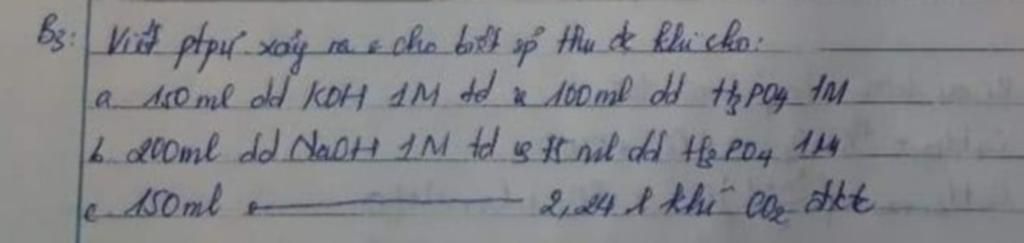 B3: Viết ptpư xảy ra & cho biết sp thu đc khi cho:
a. 150ml dd KOH 1M td vs 100ml dd H3PO4 1M
b. 200ml dd NaOH 1M td vs 75 ml dd H3PO4 1M
c. 150ml ——— 2,24 l khí CO2 đktc